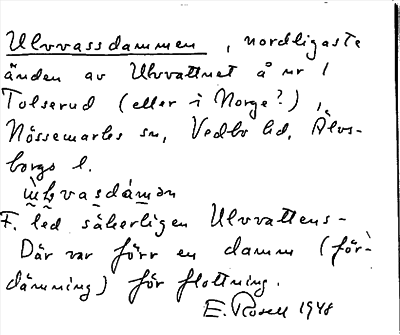 Ulvvassdammen, nordligaste
änden av Ulvvattnet å nr 1
Tolserud (eller i Norge?),
Nössemarks sn, Vedbo hd, Älvs-
borgs l.
F. led säkerligen Ulvvattens-
Där var förr en damm (för-
dämning) för flottning.
E. Rosell 1948